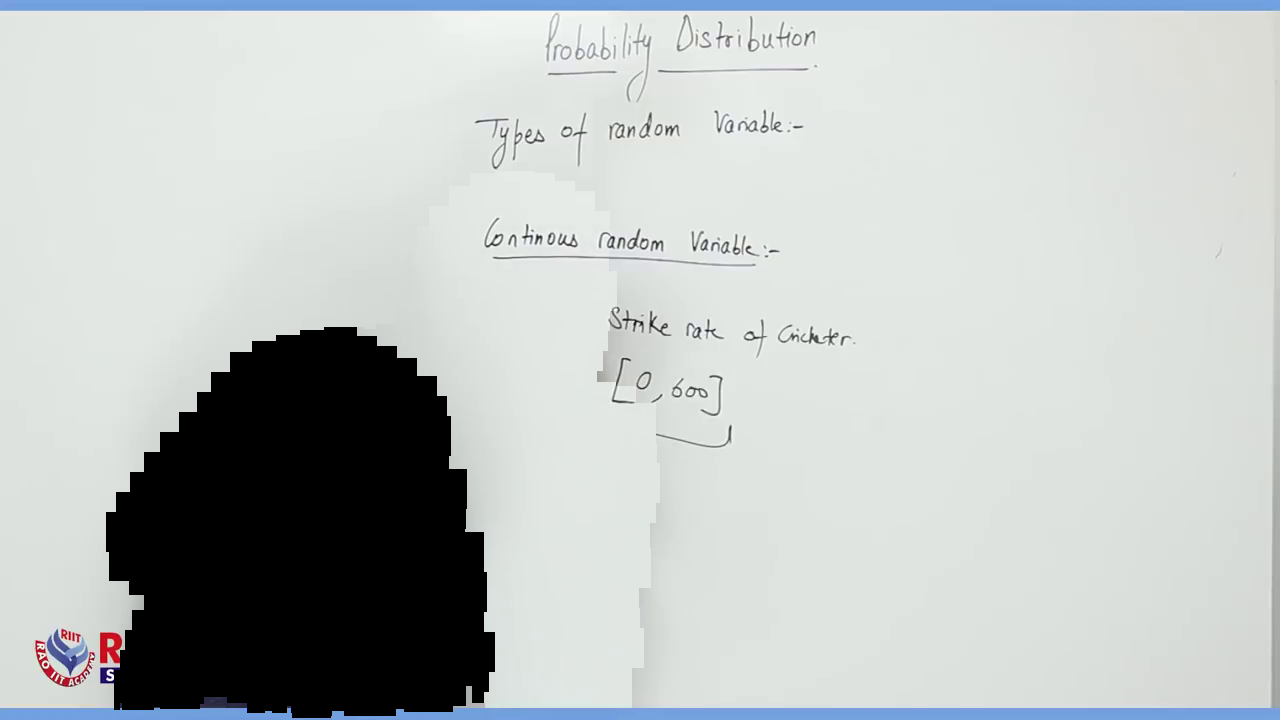 Probability Distribution
Types of random Variable:-
Continous random Variable:-
Strike rate of Cricketer.
[0, 600]
RIIT
RAO IIT ACADEMY
R
S